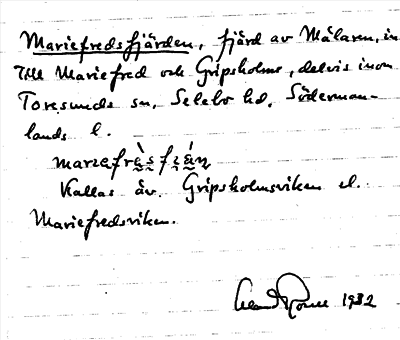 Mariefredsfjärden, fjärd av Mälaren, in
till Mariefred och Gripsholms, delvis inom
Toresunds sn, Selebo hd, Söderman-
lands l.
marıefrè̱sfı̱é̱ṇ
Kallas äv. Gripsholmsviken el.
Mariefredsviken.
1932